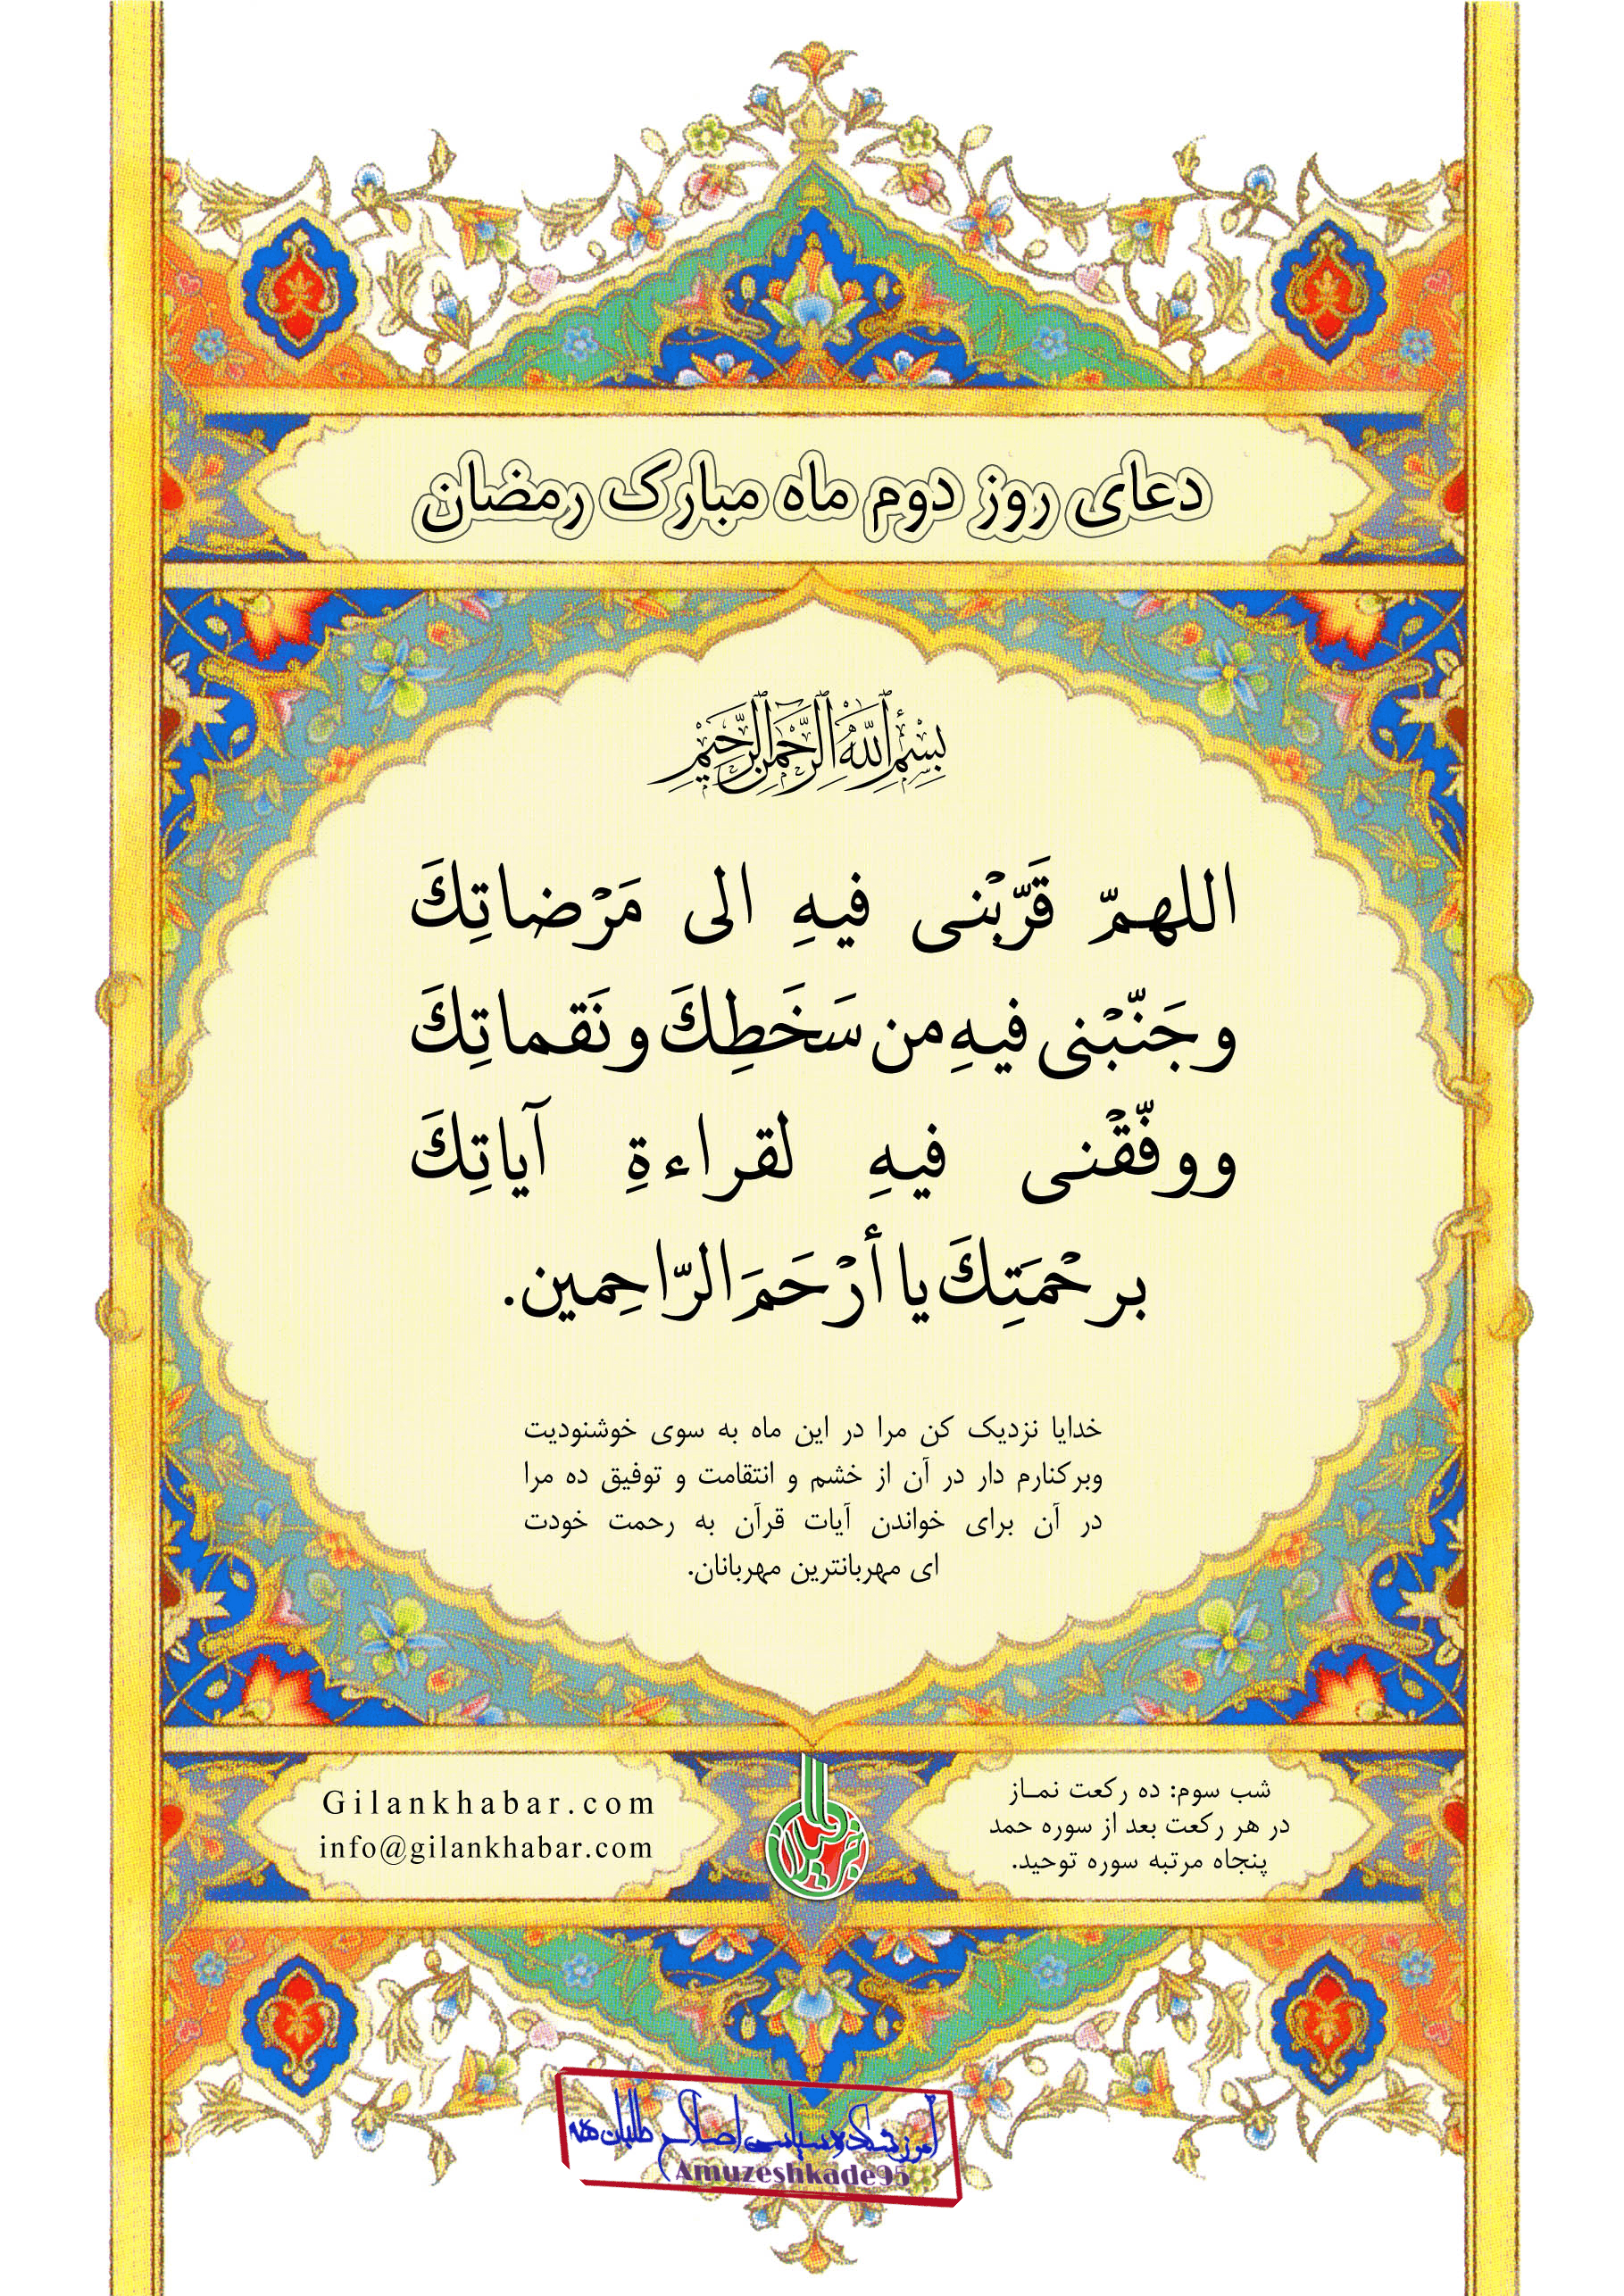 دعای روز دوم ماه مبارک رمضان
بِسْمِ ٱللَّهِ ٱلرَّحْمَٰنِ ٱلرَّحِيمِ
اللهمّ قَرّبْنی فیهِ الی مَرْضاتِكَ
و جَنّبْنی فیهِ من سَخَطِكَ و نَقماتِكَ
و وفّقْنی فیهِ لقراءةِ آیاتِكَ
برحْمَتِكَ یا أرْحَمَ الرّاحِمین.
خدایا نزدیک کن مرا در این ماه به سوی خوشنودیت
وبرکنارم دار در آن از خشم و انتقامت و توفیق ده مرا
در آن برای خواندن آیات قرآن به رحمت خودت
ای مهربانترین مهربانان.
شب سوم: ده رکعت نمـاز
در هر رکعت بعد از سوره حمد
پنجاه مرتبه سوره توحید.
خبر گیلان
Gilankhabar.com
info@gilankhabar.com
آموزشکده سیاسی اصلاح طلبان
Amuzeshkade95